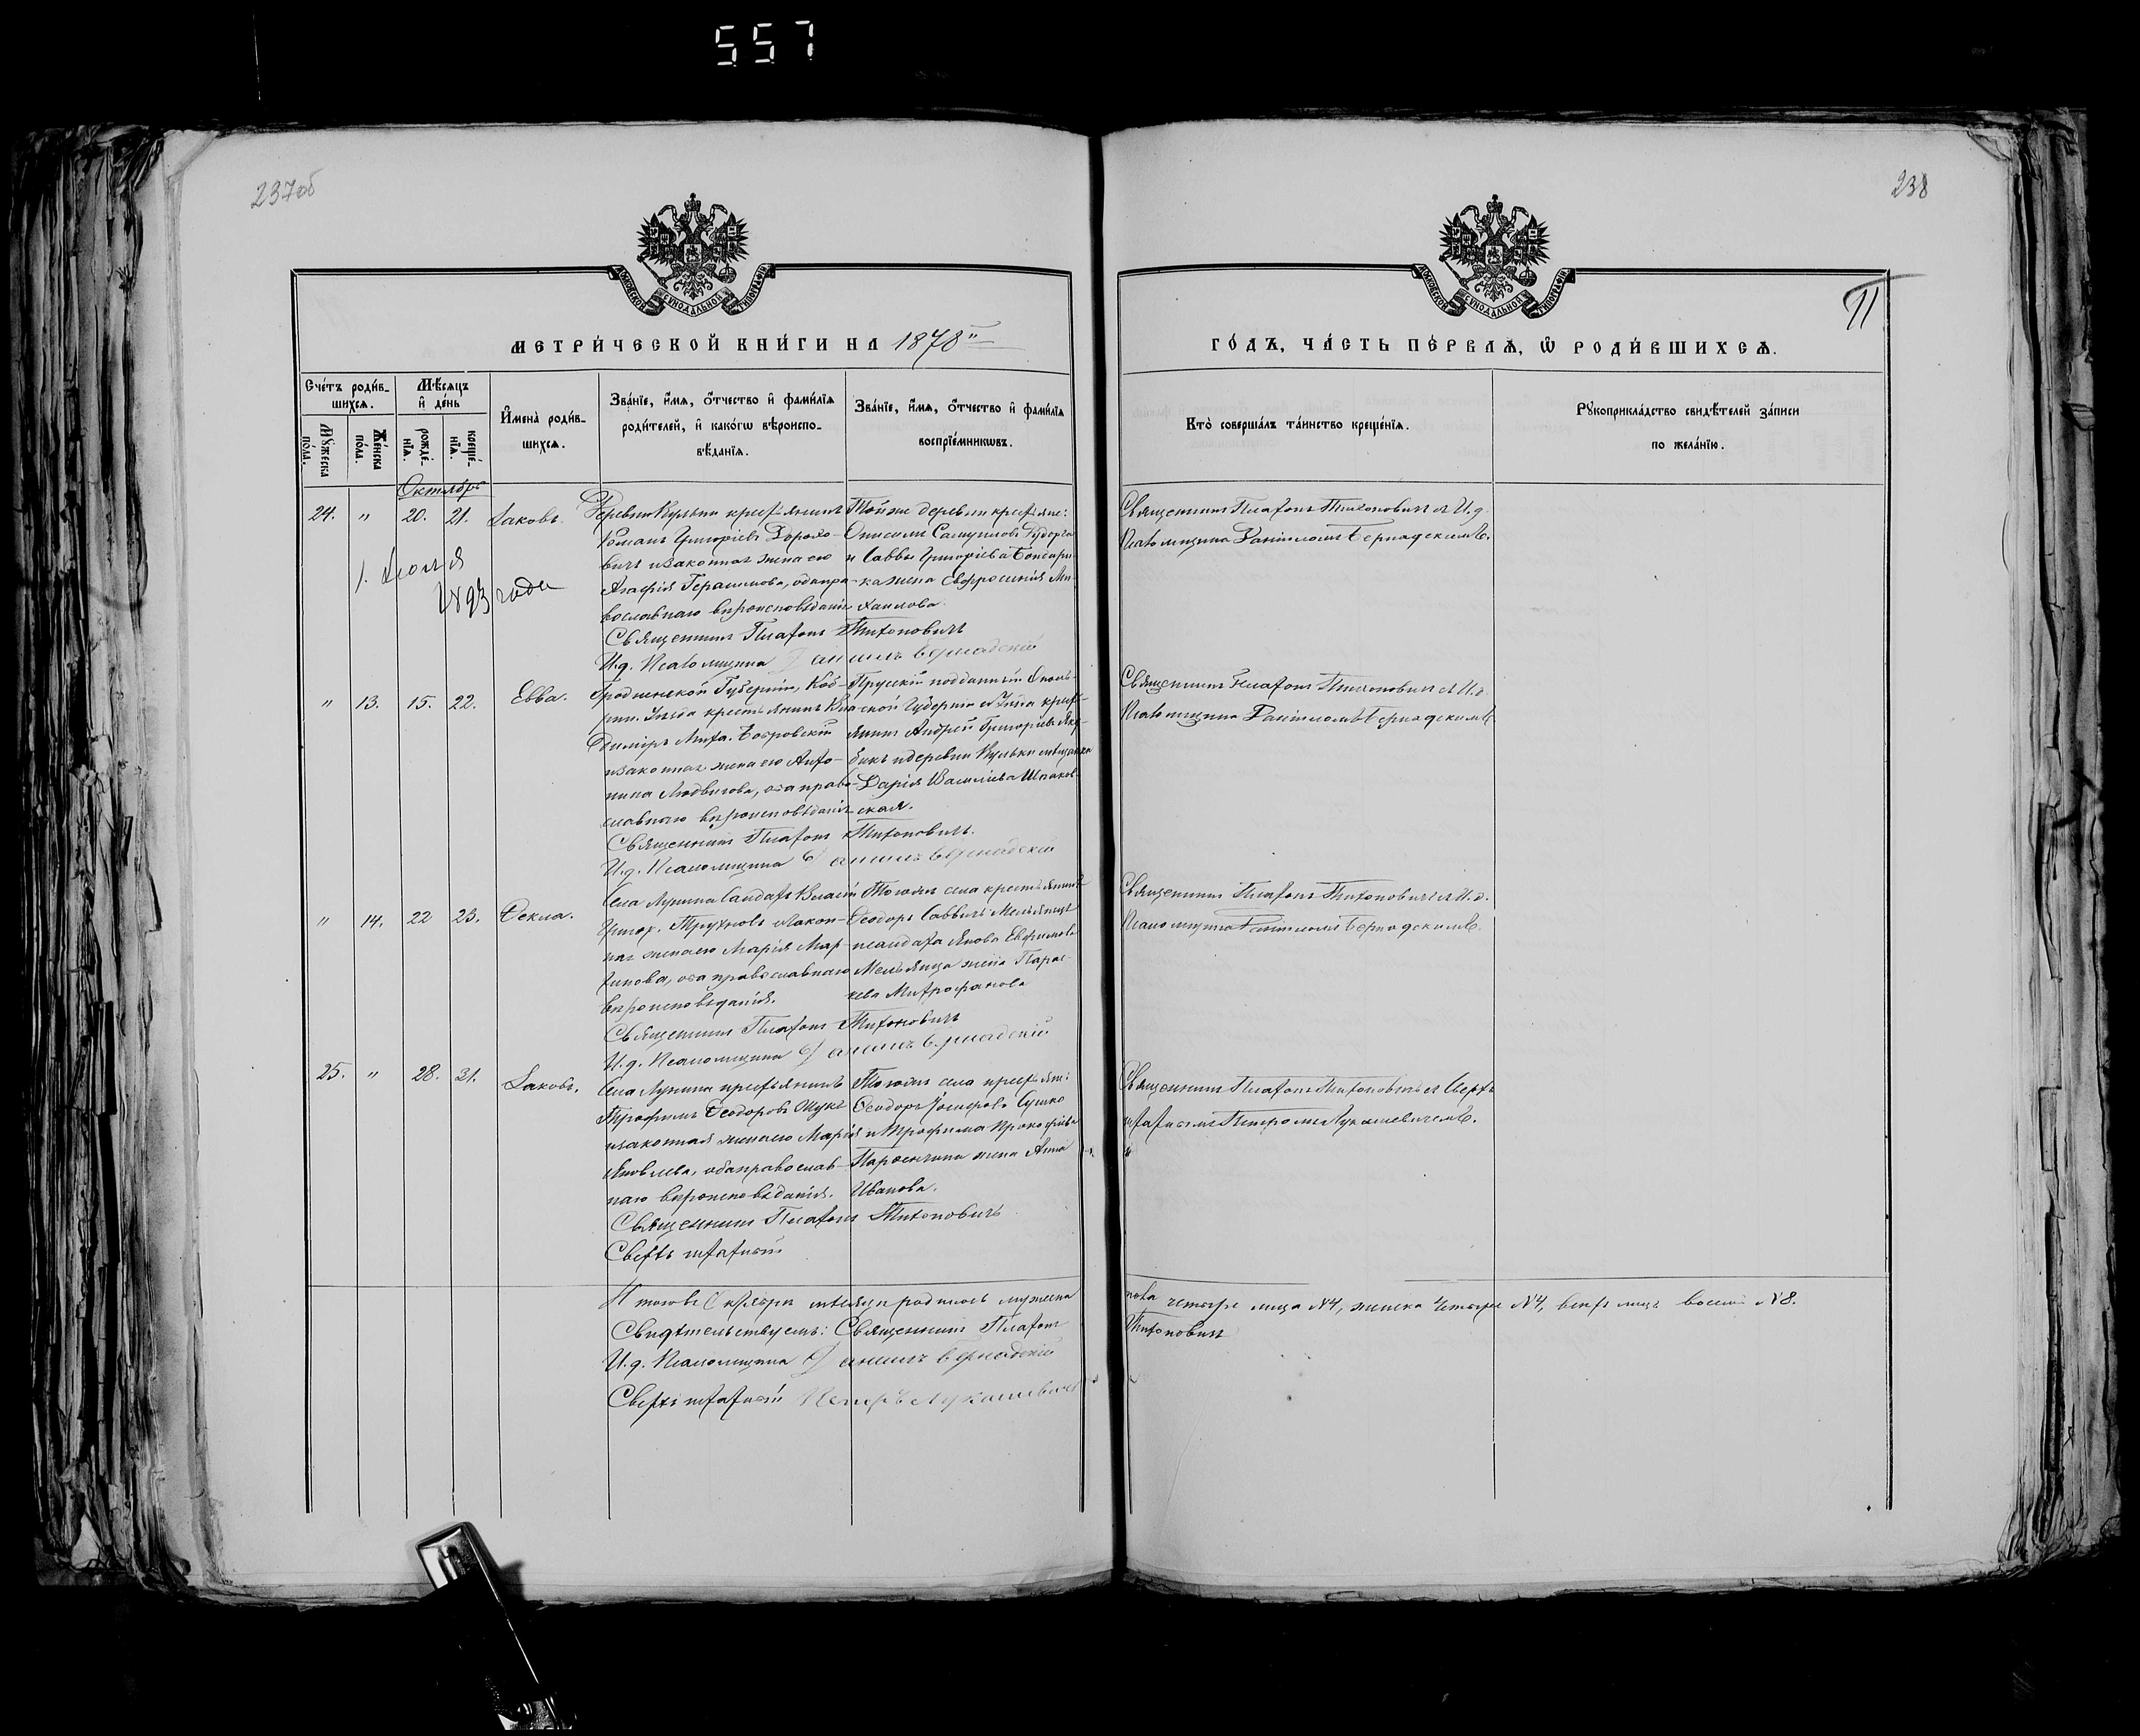 557
237об
238
11
МОСКОВСКОЙ СѴНОДАЛЬНОЙ ТИПОГРАФІИ
МОСКОВСКОЙ СѴНОДАЛЬНОЙ ТИПОГРАФІИ
МЕТРИ́ЧЕСКОЙ КНИ́ГИ НА 1878й
ГО́ДЪ, ЧА́СТЬ ПЕ́РВАѦ, Ѡ҆ РОДИ́ВШИХСѦ.
Сче́тъ роди́в-
шихсѧ.
Мꙋ́жеска по́ла.
Же́нска по́ла.
Мѣ́сѧцъ и҆ де́нь
рожде́-
нїѧ.
креще́-
нїѧ.
И҆мена̀ роди́в-
шихсѧ.
Зва́нїе, и҆́мѧ, ѻ҆́тчество и҆ фами́лїѧ
роди́телей, и҆ како́гѡ вѣроиспо-
вѣ́данїѧ.
Зва́нїе, и҆́мѧ, ѻ҆́тчество и҆ фами́лїѧ
воспрїе́мникѡвъ.
Кто̀ соверша́лъ та́инство креще́нїѧ.
Рꙋкоприкла́дство свидѣ́телей за́писи
по жела́нїю.
Октябрь
24. " 20. 21. Іаковъ.
Деревни Кульки крестьянинъ
Романъ Григоріевъ Дорохо-
вичъ и законная жена его
Агафія Герасимова, оба пра-
вославнаго вѣроисповѣданія
Священникъ Платонъ Тихоновичъ
И.д. Псаломщика Даніилъ Бернадскій
Той же деревни крестьяне:
Онисимъ Самуиловъ
и Саввы Григоріева Бондари-
ка жена Евфросинія Ми-
хаилова.
Священникъ Платонъ Тихоновичъ и И.д.
Псаломщика Даніиломъ Бернадскимъ.
1. Іюля
1893 года
" 13. 15. 22. Евва.
Гродненской Губерніи, Коб-
рин. Уѣзда крестьянинъ Вла-
диміръ Боровскій
и законная жена его Анто-
нина Людвигова, оба право-
славнаго вѣроисповѣданія
Священникъ Платонъ Тихоновичъ.
И.д. Псаломщика Даніилъ Бернадскій
Прускій подданный
ской Губерніи и Уѣзда кресть-
янинъ Андрей Григоріевъ Яку-
бикъ и деревни Кульки мѣщанка
Дарія Василіева Шпаков-
ская.
Священникъ Платонъ Тихоновичъ и И.д.
Псаломщика Даніиломъ Бернадскимъ
" 14. 22 23. Ѳекла.
Села Лунина Солдатъ Василій
Григор. Трухновъ и закон-
ная жена его Марія Мар-
тинова, оба православнаго
вѣроисповѣданія.
Священникъ Платонъ Тихоновичъ
И.д. Псаломщика Даніилъ Бернадскій
Того же села крестьянинъ
Ѳеодоръ Саввичъ Мельянецъ
и солдата Якова Ефимова
Мельянца жена Парас-
кева Митрофанова
Священникъ Платонъ Тихоновичъ и И.д.
Псаломщика Даніиломъ Бернадскимъ.
25. " 28. 31. Іаковъ.
Села Лунина крестьянинъ
Трофимъ Ѳеодоровъ Жукъ
и законная жена его Марія
Яковлева, оба православ-
наго вѣроисповѣданія.
Священникъ Платонъ Тихоновичъ
Сверхштатный
Того же села крестьяне:
Ѳеодоръ Іосифовъ Сушко
и Трофима Прокофіева
жена Анна
Иванова.
Священникъ Платонъ Тихоновичъ и Сверх-
штатнымъ Петромъ Лукашевичемъ.
Итого въ Октябрѣ мѣсяцѣ родилось мужеска пола четыре лица №4, женска четыре №4, всѣхъ лицъ восемь №8.
Свидѣтельствуемъ: Священникъ Платонъ Тихоновичъ
И.д. Псаломщика Даніилъ Бернадскій
Сверхштатный Петръ Лукашевичъ